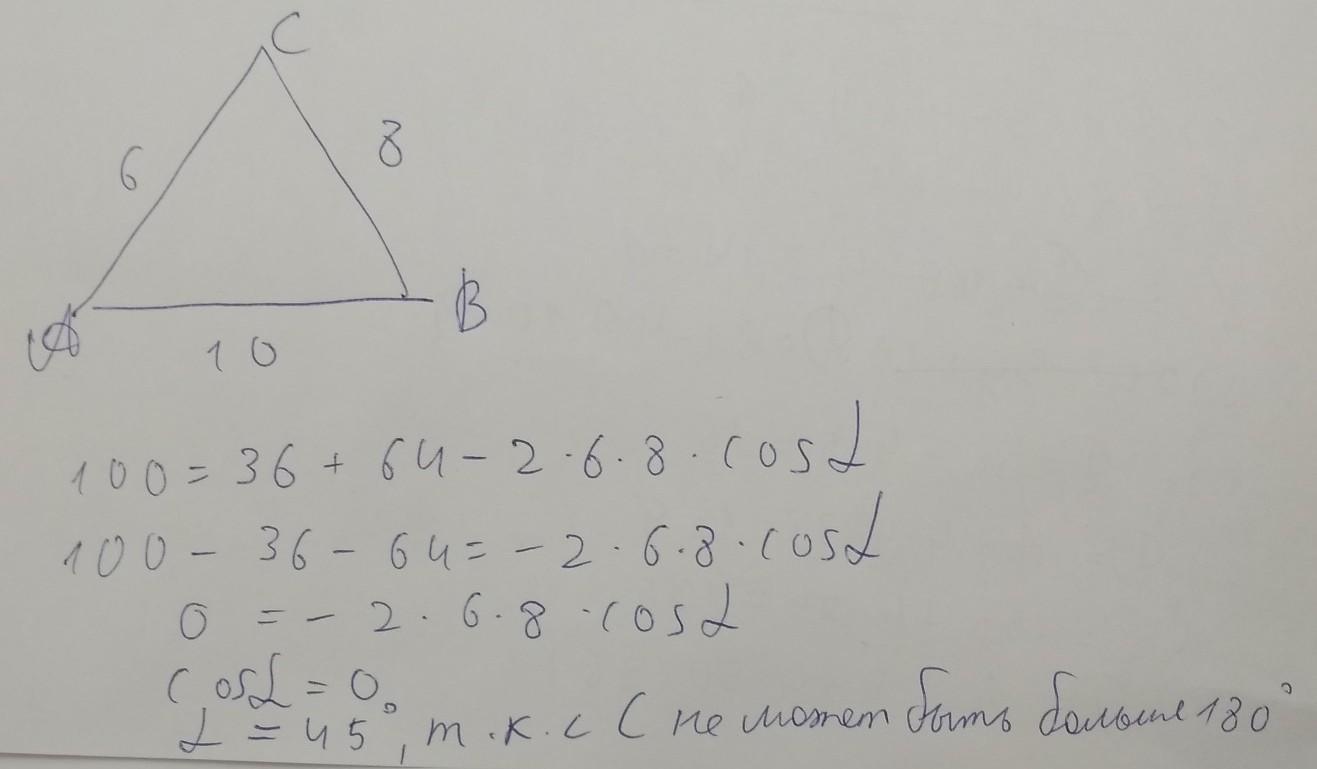 C
6
8
A
B
10
100 = 36 + 64 - 2 · 6 · 8 · cos α
100 - 36 - 64 = - 2 · 6 · 8 · cos α
0 = - 2 · 6 · 8 · cos α
cos α = 0
α = 45°, т.к. ∠ C не может быть больше 180°